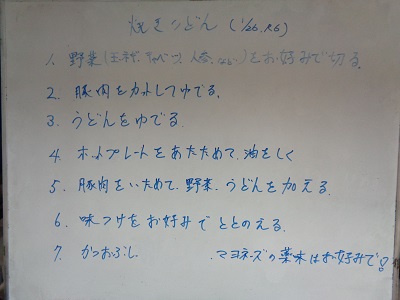 焼きうどん (1/26. R6)
1. 野菜(玉ネギ、キャベツ、人参、など)をお好みで切る。
2. 豚肉をカットしてゆでる。
3. うどんをゆでる。
4 ホットプレートをあたためて、油をしく
5. 豚肉をいためて、野菜、うどんを加える。
6. 味つけをお好みでととのえる。
7. かつおぶし、マヨネーズの薬味はお好みで!